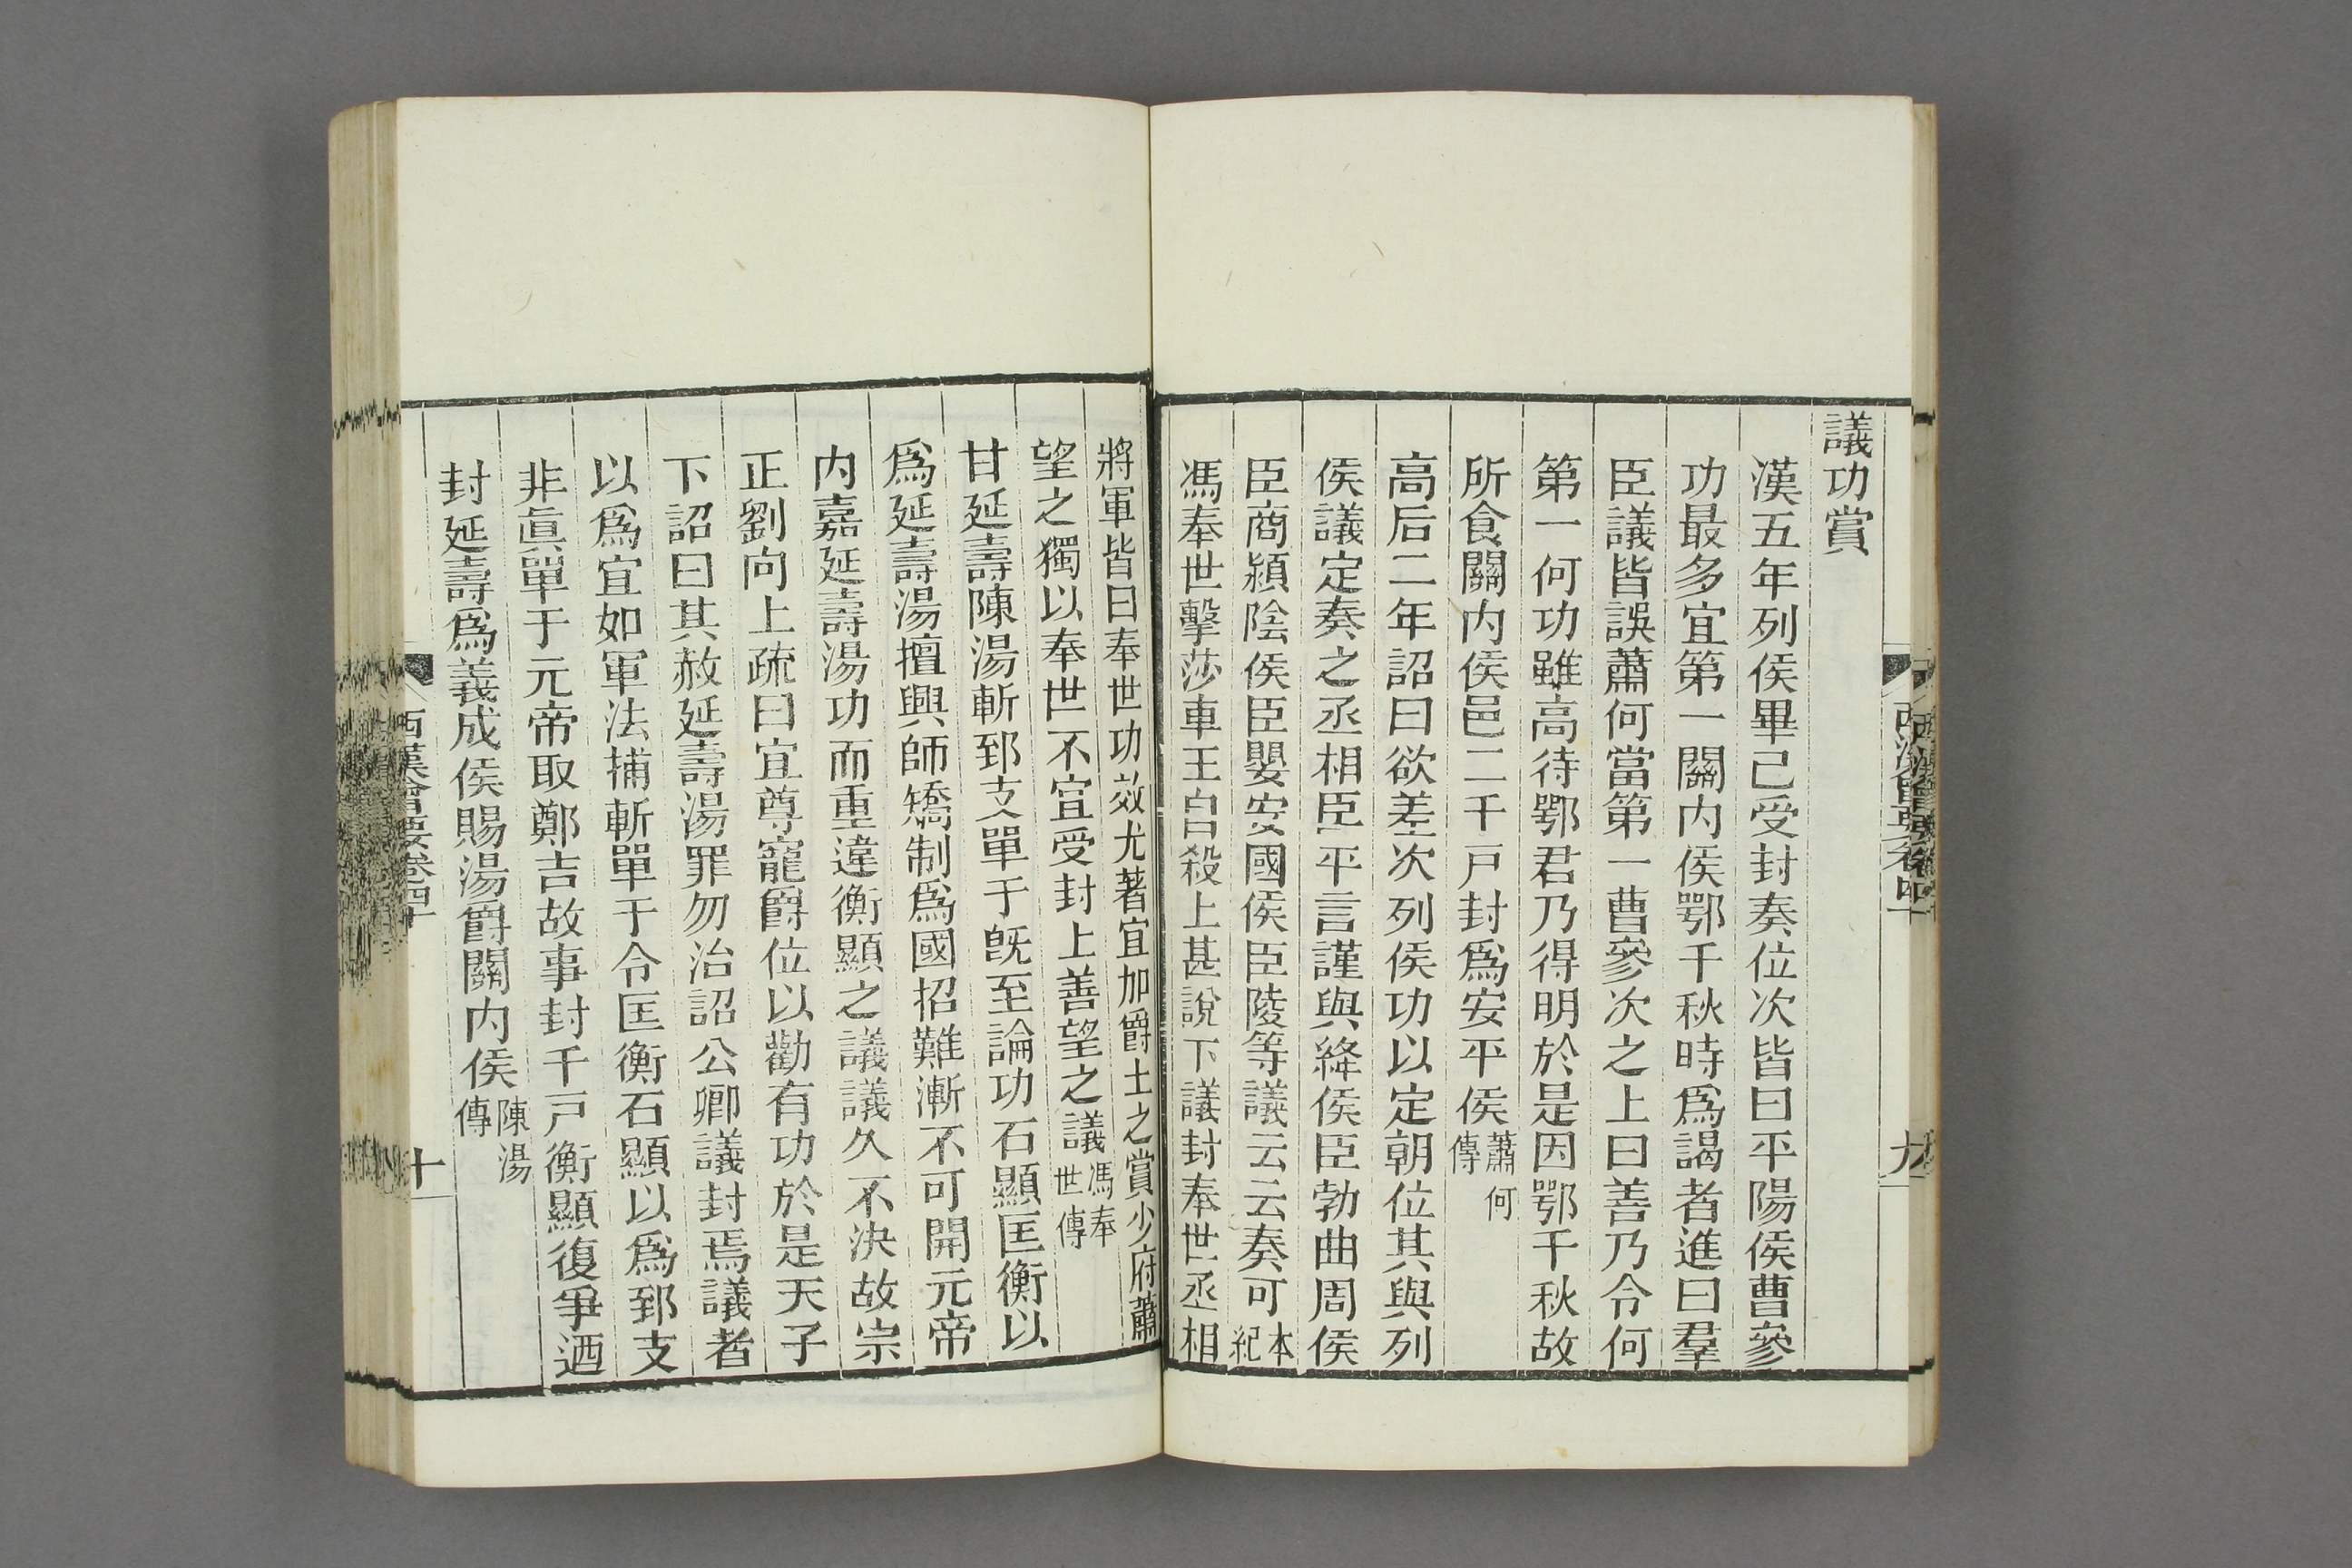 議功賞
漢五年列侯畢已受封奏位次皆曰平陽侯曹參
功最多宜第一關内侯鄂千秋時爲謁者進曰羣
臣議皆誤蕭何當第一曹參次之上曰善乃令何
第一何功雖高待鄂君乃得明於是因鄂千秋故
所食關内侯邑二千戸封爲安平侯蕭何傳
高后二年詔曰欲差次列侯功以定朝位其與列
侯議定奏之丞相臣平言謹與絳侯臣勃曲周侯
臣商潁陰侯臣嬰安國侯臣陵等議云云奏可本紀
馮奉世擊莎車王自殺上甚說下議封奉世丞相
將軍皆曰奉世功效尤著宜加爵土之賞少府蕭
望之獨以奉世不宜受封上善望之議馮奉世傳
甘延壽陳湯斬郅支單于旣至論功石顯匡衡以
爲延壽湯擅興師矯制爲國招難漸不可開元帝
内嘉延壽湯功而重違衡顯之議議久不決故宗
正劉向上疏曰宜尊寵爵位以勸有功於是天子
下詔曰其赦延壽湯罪勿治詔公卿議封焉議者
以爲宜如軍法捕斬單于令匡衡石顯以爲郅支
非眞單于元帝取鄭吉故事封千戸衡顯復爭迺
封延壽爲義成侯賜湯爵關内侯陳湯傳
西漢會要卷四十
十